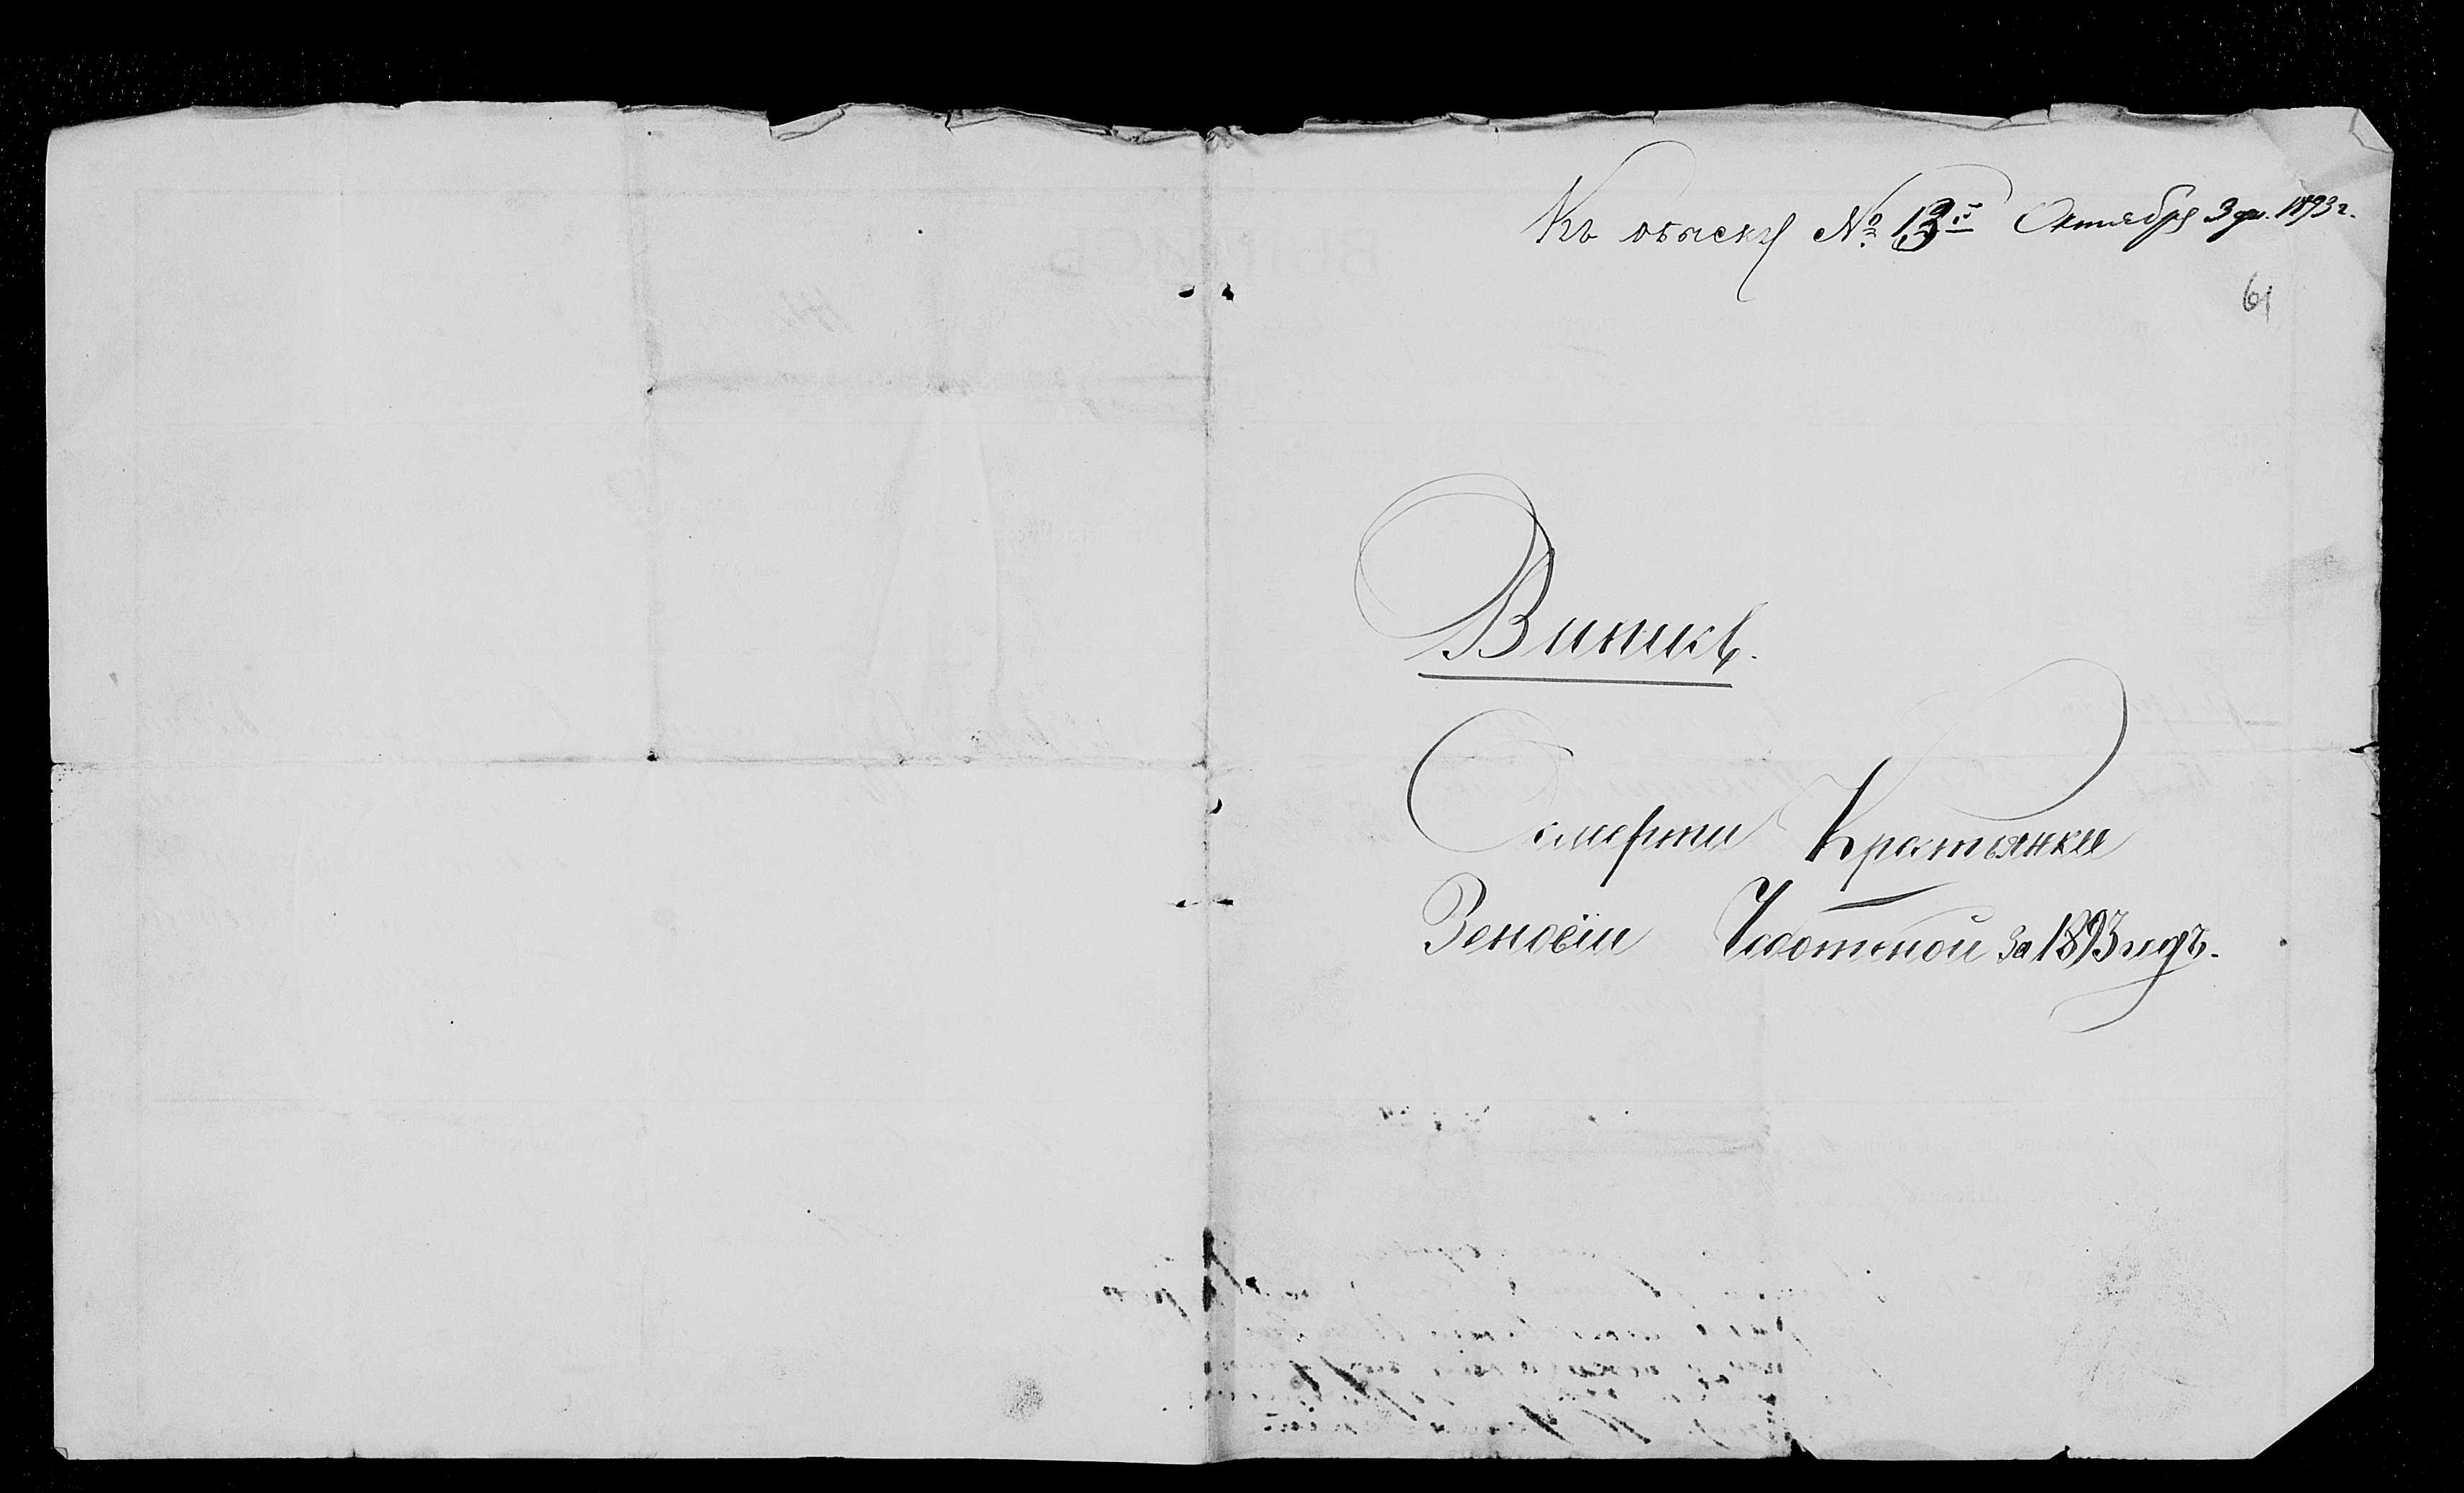 Къ обыску № 13й Октября 3 дн. 1893 г.
61
Випись.
О смерти Крестьянки
Зеновіи Чоботиной за 1893 годъ.